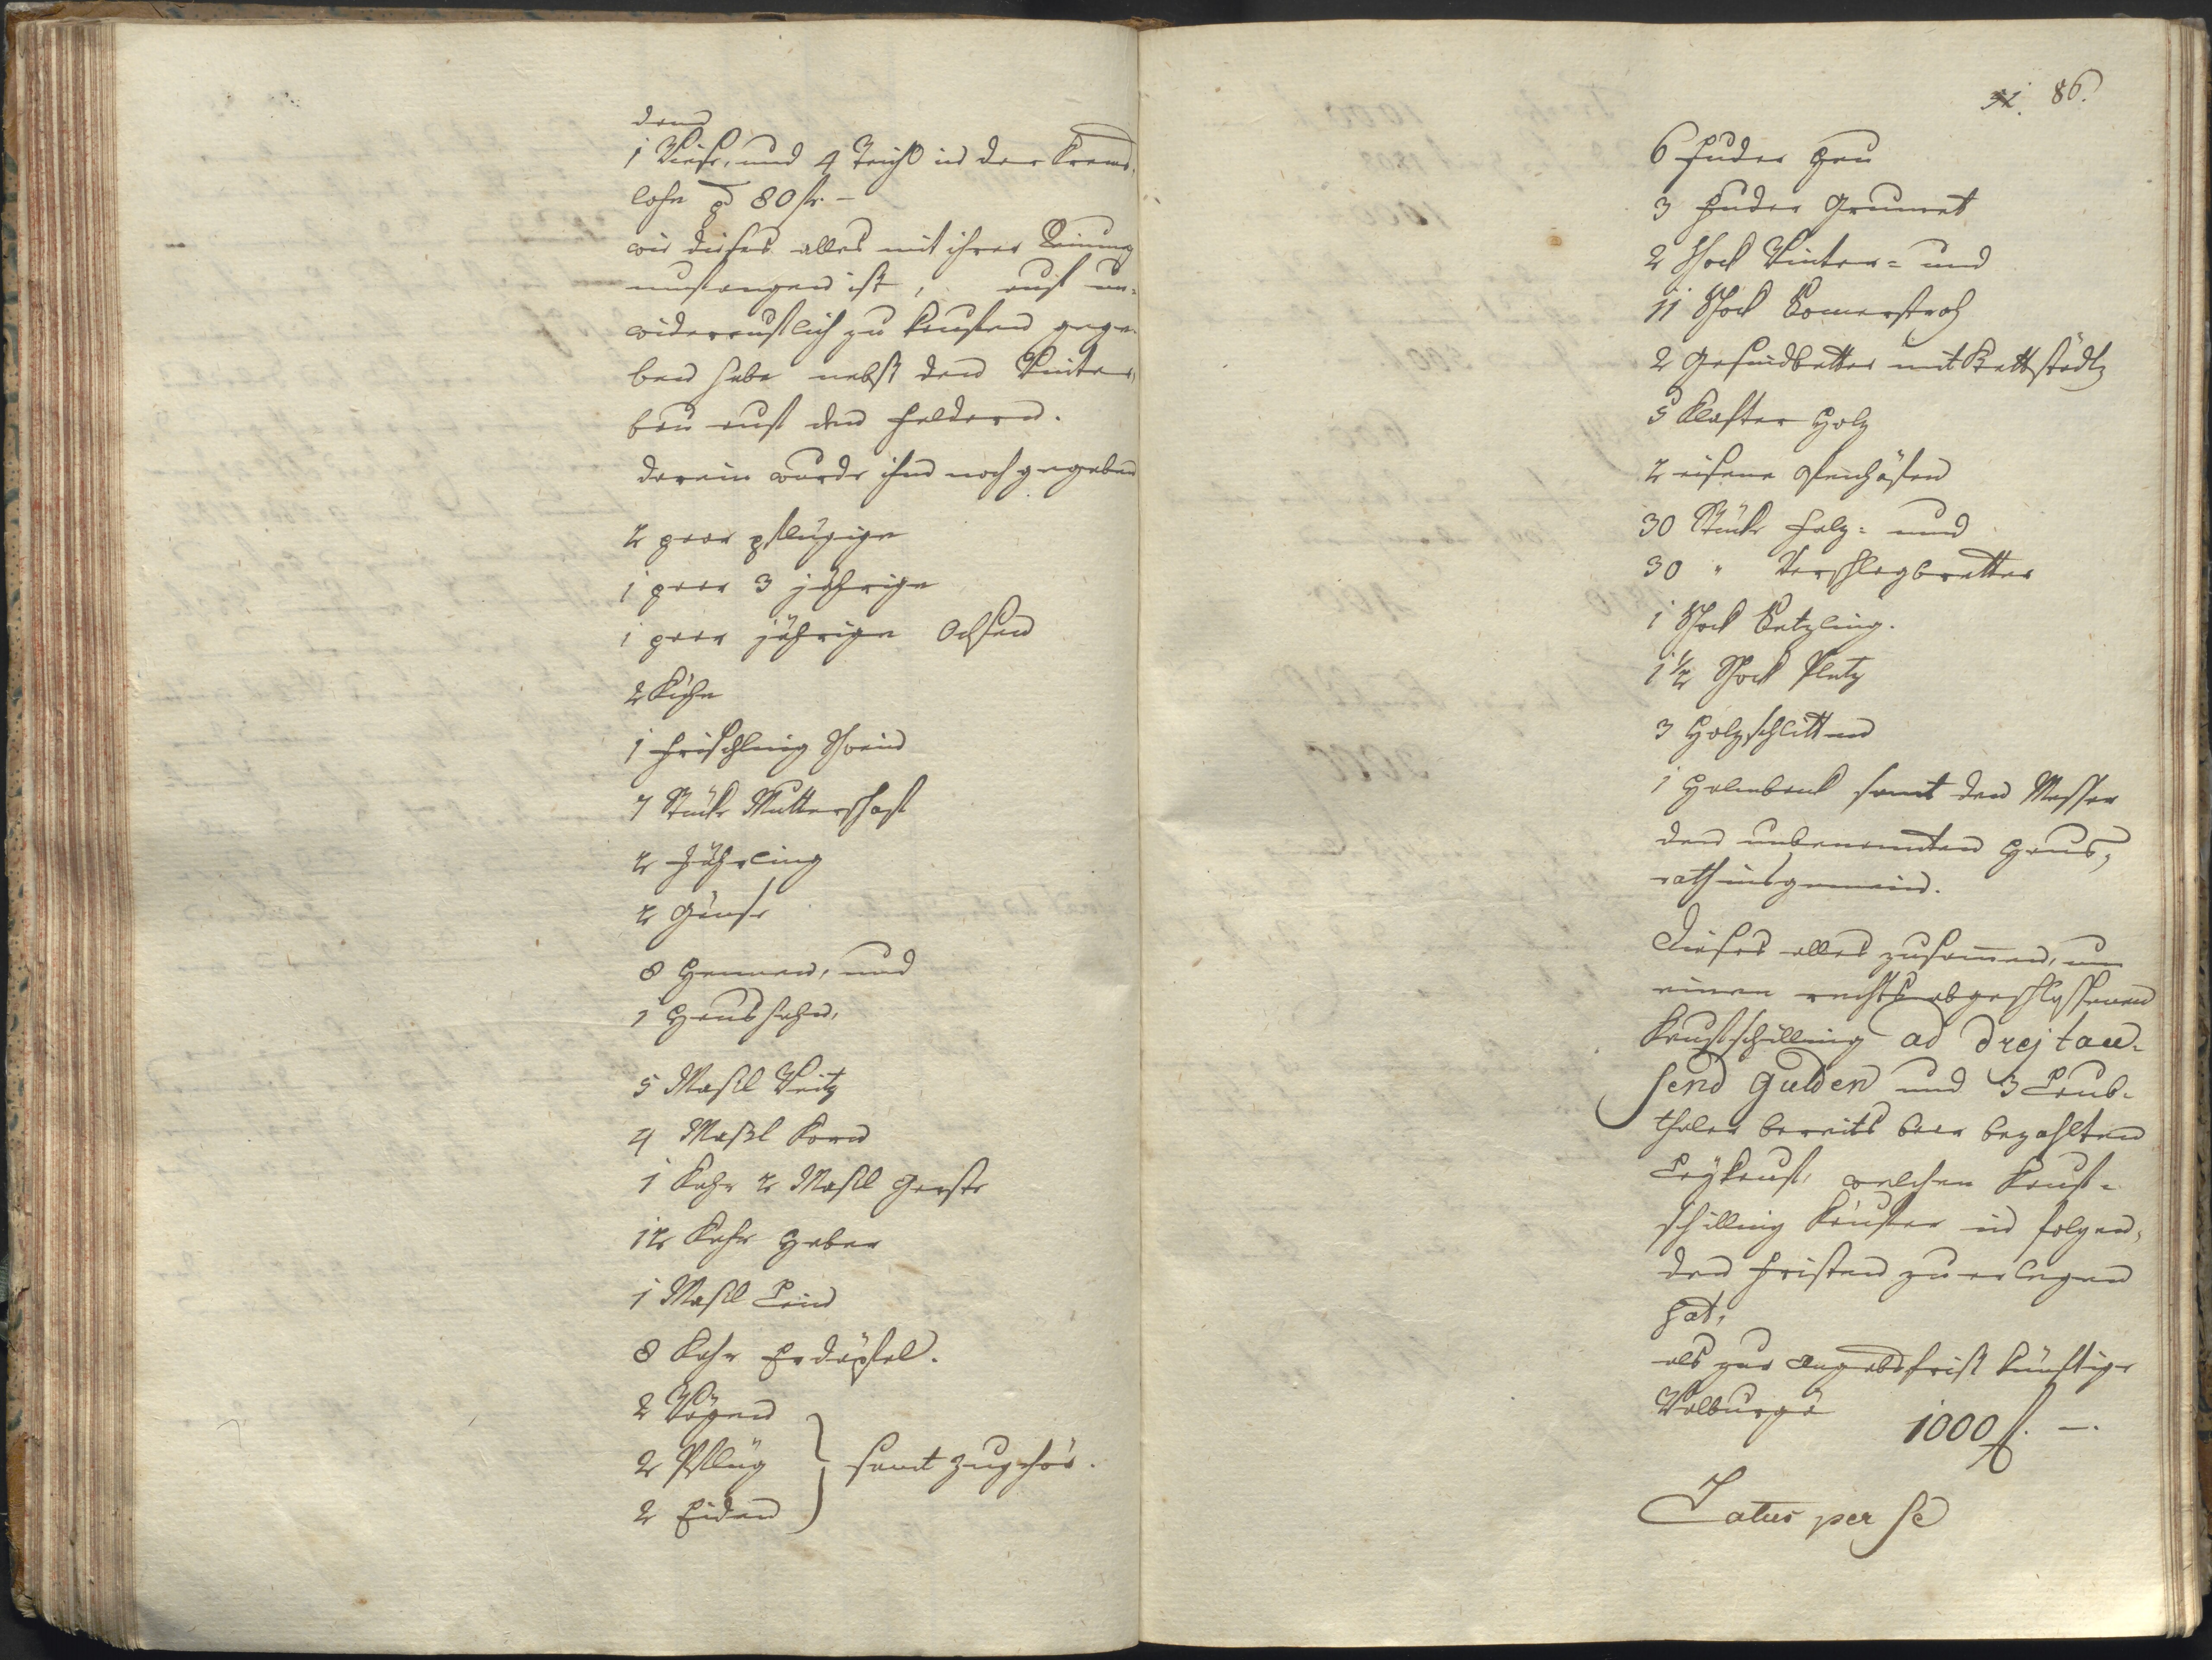 dann
1 Wiese, und 4 Teichl in der Krems
lohe pd 80 fr. —
wie dieses alles mit ihrer Rainung
umfangen ist, auch un-
widerruflich zu kaufen gege-
ben habe nebst den Winter,
bau auf den Feldern.
darein wurde ihm noch gegeben
2 paar pflügige
1 paar 3 jährige
1 paar jährige Ochsen
2 Kühe
1 Frischling Schwein
7 Stücke Mutterschaf
2 Jährling
2 Gänse
8 Hennen, und
1 Haushahn,
5 Maßl Weitz
4 Maßl Korn
1 Kahr 2 Maßl Gerste
12 Kahr Haber
1 Maßl Lein
8 Kahr Erdäpfel.
2 Wägen
2 Pflüg } samt Zugehör.
2 Eiden
31. 86.
6 Fuder Heu
3 Fuder Grumet
2 Schock Winter= und
11 Schock Somerstroh
2 Gesindbetter mit Bettstädtl
5 Klafter Holz
2 eiserne Ofenhäfen
30 Stücke Falz= und
30 " Verschlagbretter
1 Schock Setzling.
1 1/2 Schock Pletz
3 Holzschlitten
1 Halmbank samt den Messer
den unbenannten Haus,
rath insgemein.
Dieses alles zusamen, um
einen rechts abgeschlossenen
Kaufschilling ad drej tau-
send Gulden und 3 Laub-
thaler bereits baar bezahlten
Leykauf, welchen Kauf-
schilling Käufer in folgen,
den Fristen zu erlegen
hat,
als zur Angabsfrist künftige
Walburgi 1000 f. —.
Latus per se